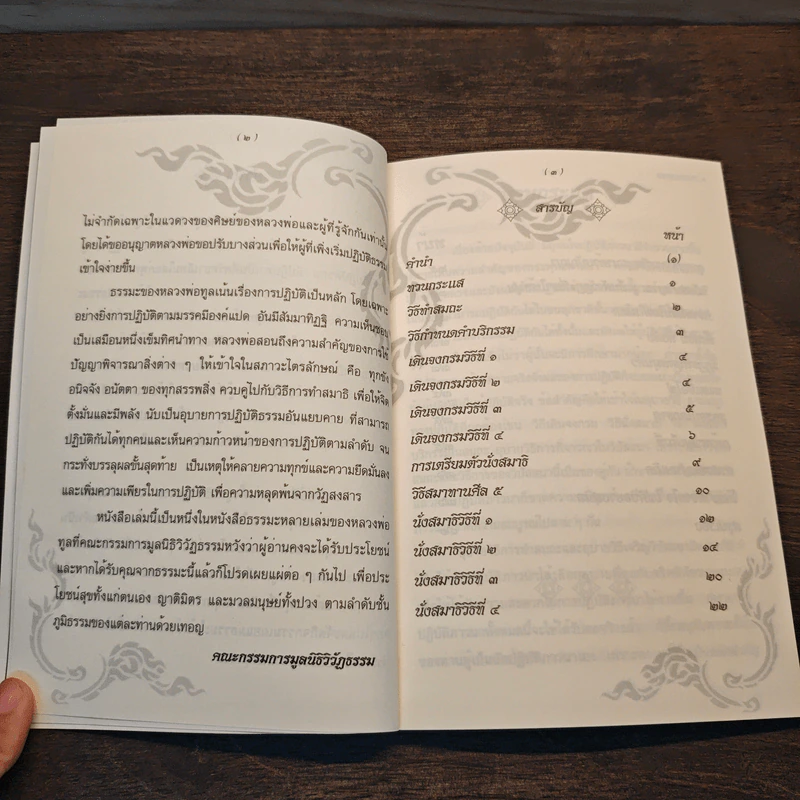 (๒)
ไม่จำกัดเฉพาะในแวดวงของศิษย์ของหลวงพ่อและผู้ที่รู้จักกันเท่านั้น
โดยได้ขออนุญาตหลวงพ่อขอปรับบางส่วนเพื่อให้ผู้ที่เพิ่งเริ่มปฏิบัติธรรม
เข้าใจง่ายขึ้น
ธรรมะของหลวงพ่อทูลเน้นเรื่องการปฏิบัติเป็นหลัก โดยเฉพาะ
อย่างยิ่งการปฏิบัติตามมรรคมีองค์แปด อันมีสัมมาทิฏฐิ ความเห็นชอบ
เป็นเสมือนหนึ่งเข็มทิศนำทาง หลวงพ่อสอนถึงความสำคัญของการใช้
ปัญญาพิจารณาสิ่งต่าง ๆ ให้เข้าใจในสภาวะไตรลักษณ์ คือ ทุกขัง
อนิจจัง อนัตตา ของทุกสรรพสิ่ง ควบคู่ไปกับวิธีการทำสมาธิ เพื่อให้จิต
ตั้งมั่นและมีพลัง นับเป็นอุบายการปฏิบัติธรรมอันแยบคาย ที่สามารถ
ปฏิบัติกันได้ทุกคนและเห็นความก้าวหน้าของการปฏิบัติตามลำดับ จน
กระทั่งบรรลุผลขั้นสุดท้าย เป็นเหตุให้คลายความทุกข์และความยึดมั่นลง
และเพิ่มความเพียรในการปฏิบัติ เพื่อความหลุดพ้นจากวัฏสงสาร
หนังสือเล่มนี้เป็นหนึ่งในหนังสือธรรมะหลายเล่มของหลวงพ่อ
ทูลที่คณะกรรมการมูลนิธิวิวัฏธรรมหวังว่าผู้อ่านคงจะได้รับประโยชน์
และหากได้รับคุณจากธรรมะนี้แล้วก็โปรดเผยแผ่ต่อ ๆ กันไป เพื่อประ
โยชน์สุขทั้งแก่ตนเอง ญาติมิตร และมวลมนุษย์ทั้งปวง ตามลำดับชั้น
ภูมิธรรมของแต่ละท่านด้วยเทอญ
คณะกรรมการมูลนิธิวิวัฏธรรม
(๓)
สารบัญ
หน้า
คำนำ (๑)
ทวนกระแส ๑
วิธีทำสมถะ ๒
วิธีกำหนดคำบริกรรม ๓
เดินจงกรมวิธีที่ ๑ ๔
เดินจงกรมวิธีที่ ๒ ๔
เดินจงกรมวิธีที่ ๓ ๕
เดินจงกรมวิธีที่ ๔ ๖
การเตรียมตัวนั่งสมาธิ ๙
วิธีสมาทานศีล ๕ ๑๐
นั่งสมาธิวิธีที่ ๑ ๑๒
นั่งสมาธิวิธีที่ ๒ ๑๔
นั่งสมาธิวิธีที่ ๓ ๒๐
นั่งสมาธิวิธีที่ ๔ ๒๒